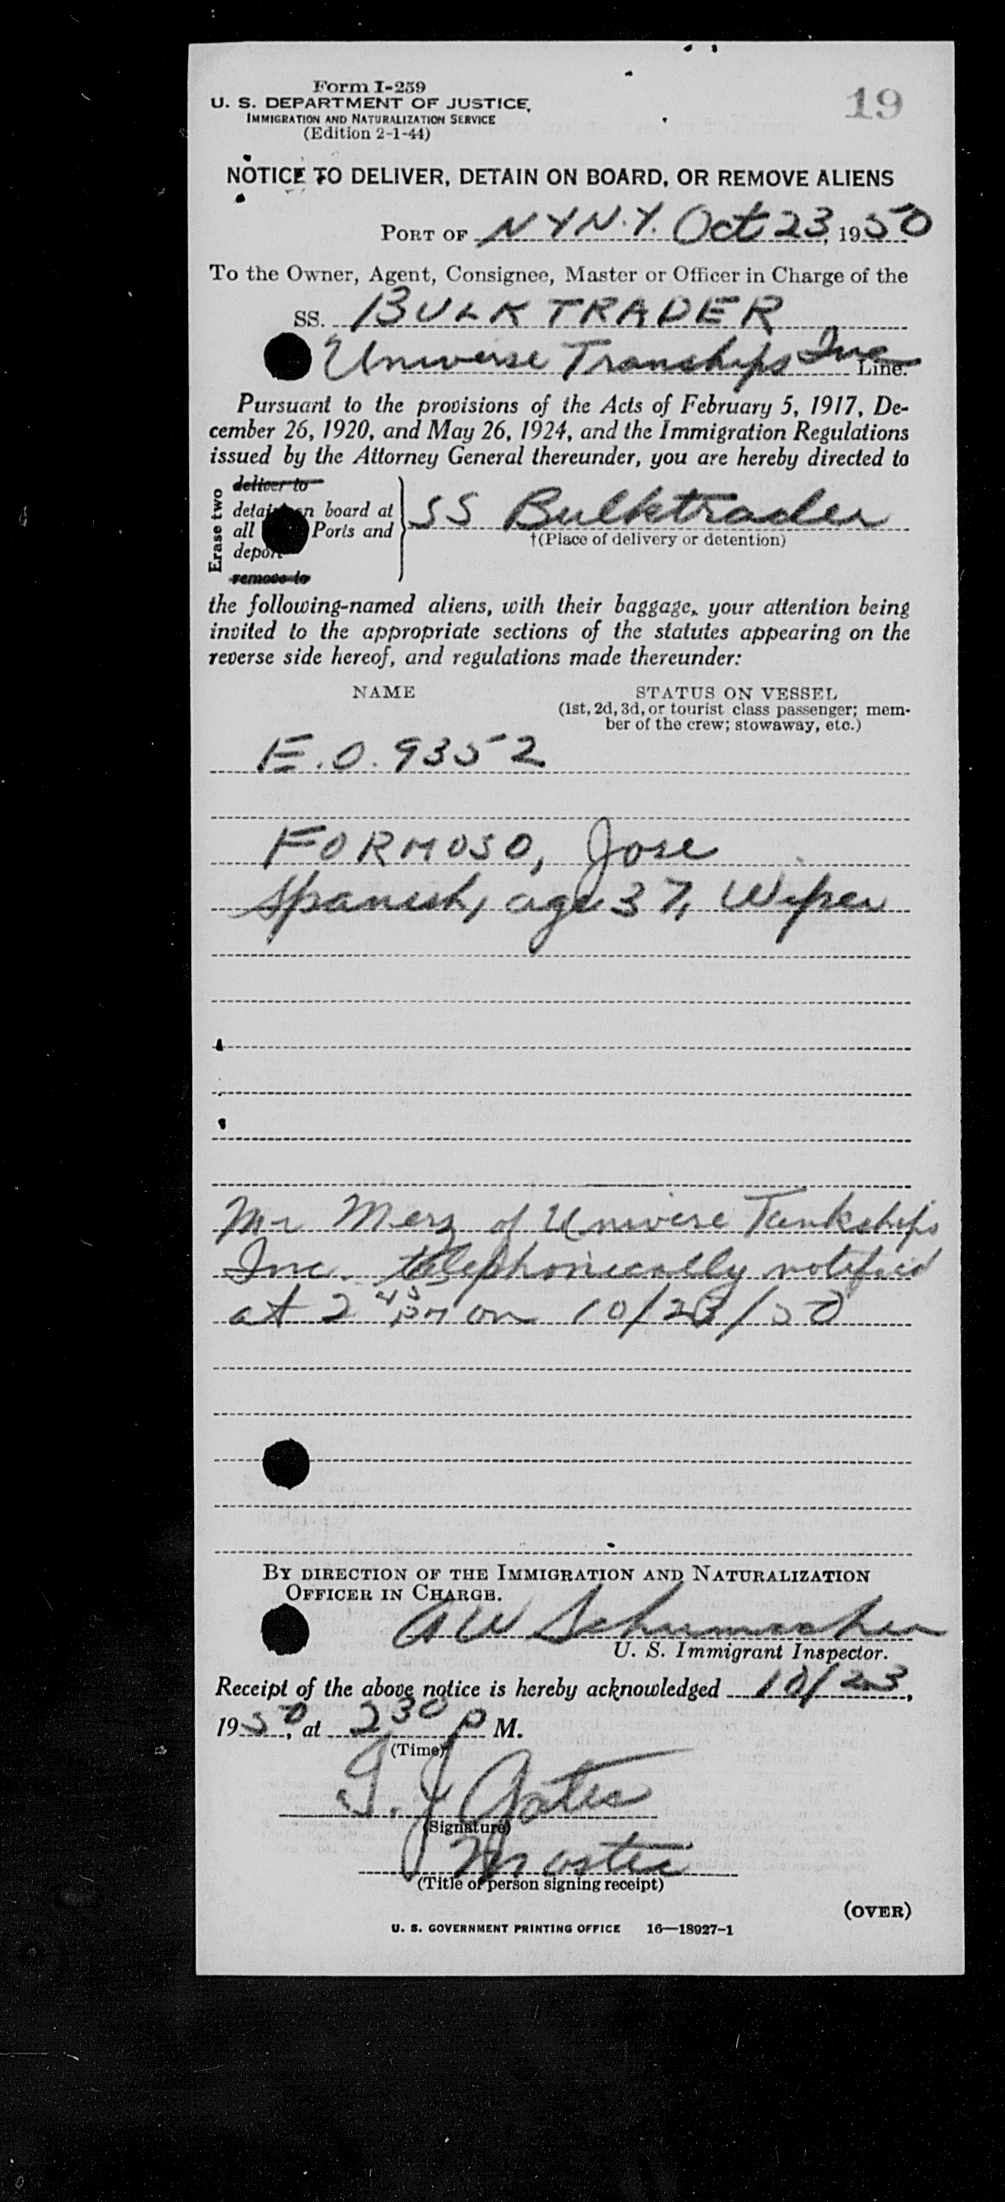 Form I-259
19
U. S. DEPARTMENT OF JUSTICE,
IMMIGRATION AND NATURALIZATION SERVICE
(Edition 2-1-44)
NOTICE TO DELIVER, DETAIN ON BOARD, OR REMOVE ALIENS
PORT OF N Y N.Y. Oct 23, 1950
To the Owner, Agent, Consignee, Master or Officer in Charge of the
SS. BULK TRADER
Universe Tranships Inc Line.
Pursuant to the provisions of the Acts of February 5, 1917, De-
cember 26, 1920, and May 26, 1924, and the Immigration Regulations
issued by the Attorney General thereunder, you are hereby directed to
Erase two
deliver to
detain on board at
all Ports and
deport
remove to
SS Bulktrader
†(Place of delivery or detention)
the following-named aliens, with their baggage, your attention being
invited to the appropriate sections of the statutes appearing on the
reverse side hereof, and regulations made thereunder:
NAME STATUS ON VESSEL
(1st, 2d, 3d, or tourist class passenger; mem-
ber of the crew; stowaway, etc.)
E.O. 9352
FORMOSO, Jose
Spanish, age 37, Wiper
Mr Merz of Universe Tankships
Inc. telephonically notified
at 2 45 PM on 10/23/50
BY DIRECTION OF THE IMMIGRATION AND NATURALIZATION
OFFICER IN CHARGE.
A W Schumacher
U. S. Immigrant Inspector.
Receipt of the above notice is hereby acknowledged 10/23,
1950, at 2 30 P M.
(Time)
(Signature)
Master
(Title of person signing receipt)
(OVER)
U. S. GOVERNMENT PRINTING OFFICE 16—18927-1